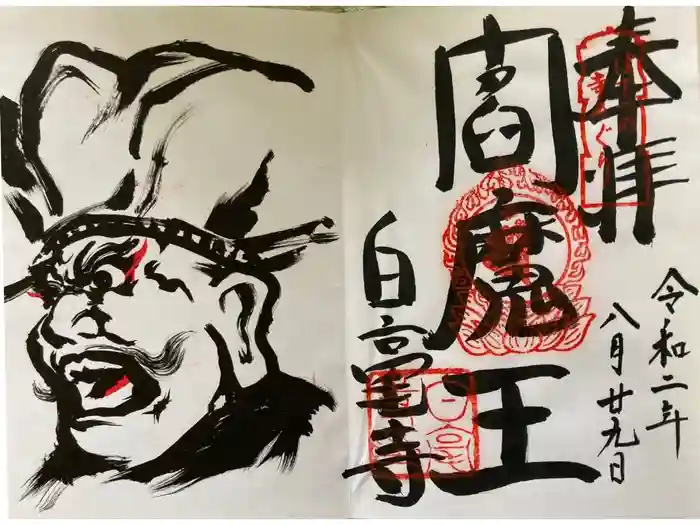 奉拝
閻魔王
白竜寺
令和二年
八月廿九日